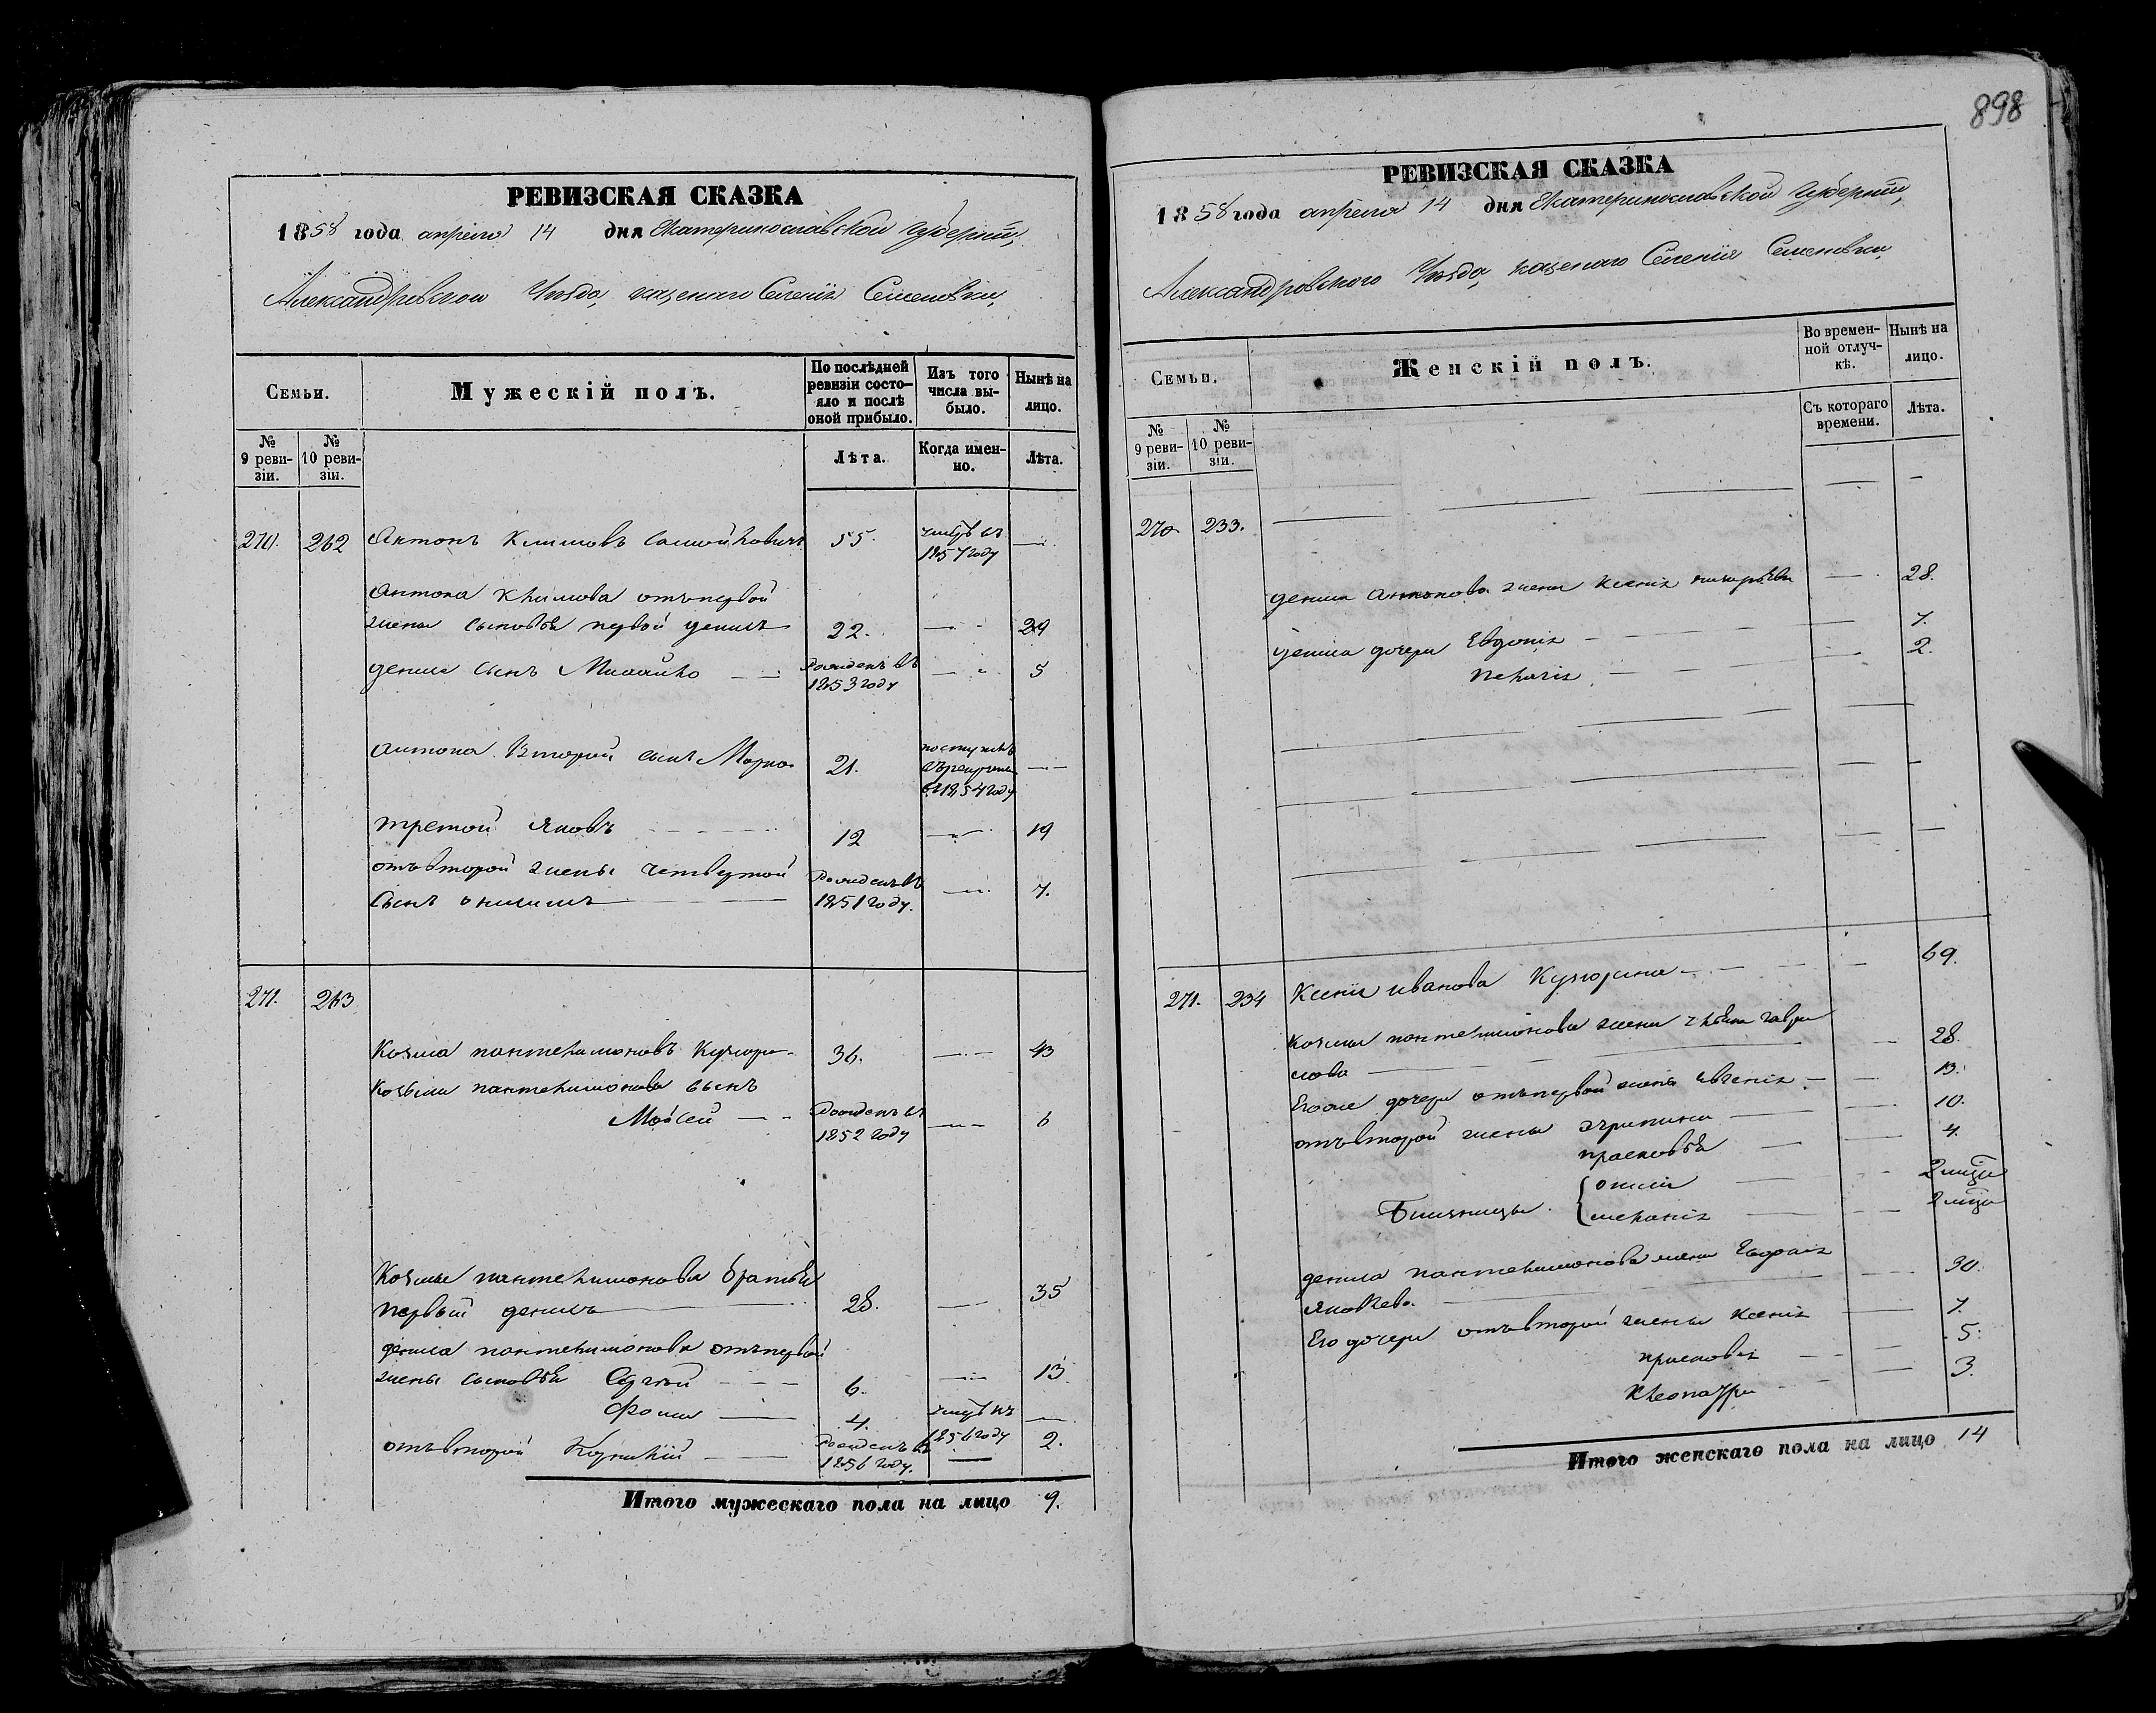 898
РЕВИЗСКАЯ СКАЗКА
1858 года апреля 14 дня Екатеринославской Губерніи,
Александровского Уезда, казенаго Селенія Семеновки,
Семьи.
Мужескій полъ.
По послѣдней ревизіи состояло и послѣ оной прибыло.
Изъ того числа выбыло.
Нынѣ на лицо.
№ 9 ревизіи.
№ 10 ревизіи.
Лѣта.
Когда именно.
Лѣта.
270. 262 Антонъ Климовъ Самойловичъ 55. умеръ въ 1857 году —
Антона Климова отъ первой
жены сыновья первой Денисъ 22. — 29
Дениса сынъ Михайло рожденъ въ 1853 году — 5
Антона Второй сынъ Марко 21. поступилъ в рекруты въ 1854 году —
третой Яковъ 12 — 19
отъ второй жены четвертой
сынъ Онисимъ рожденъ въ 1851 году. — 7.
271. 263
Козма Пантелимоновъ 36. — 43
Козьмы Пантелимонова сынъ
Моисей рожденъ въ 1852 году — 6
Козмы Пантелимонова братья
первый Денисъ 28. — 35
Дениса Пантелимонова отъ первой
жены сыновья 6. — 13.
Фома 4. умеръ въ 1856 году —
отъ второй Корнилій рожденъ въ 1856 году. — 2.
Итого мужескаго пола на лицо 9.
РЕВИЗСКАЯ СКАЗКА
1858 года апреля 14 дня Екатеринославской Губерніи,
Александровского Уезда, казенаго Селенія Семеновки,
Семьи.
Женскій полъ.
Во временной отлучкѣ.
Нынѣ на лицо.
№ 9 ревизіи.
№ 10 ревизіи.
Съ котораго времени.
Лѣта.
270 233.
Дениса Антонова жена Ксенія — 28.
Дениса дочери Евдокія — 7.
Пелагія — 2.
271. 234 Ксенія Иванова — 69.
Козмы Пантелимонова жена Гаври
лова — 28.
Его же дочери отъ первой жены Евгенія — 13.
отъ второй жены Агрипина — 10.
Прасковья — 4.
Близницы
2 месяца
Меланія — 2 месяца
Дениса Пантелимонова жена
Яковлева — 30.
Его дочери отъ второй жены Ксенія — 7.
Прасковья — 5.
Клеопатра — 3.
Итого женскаго пола на лицо 14